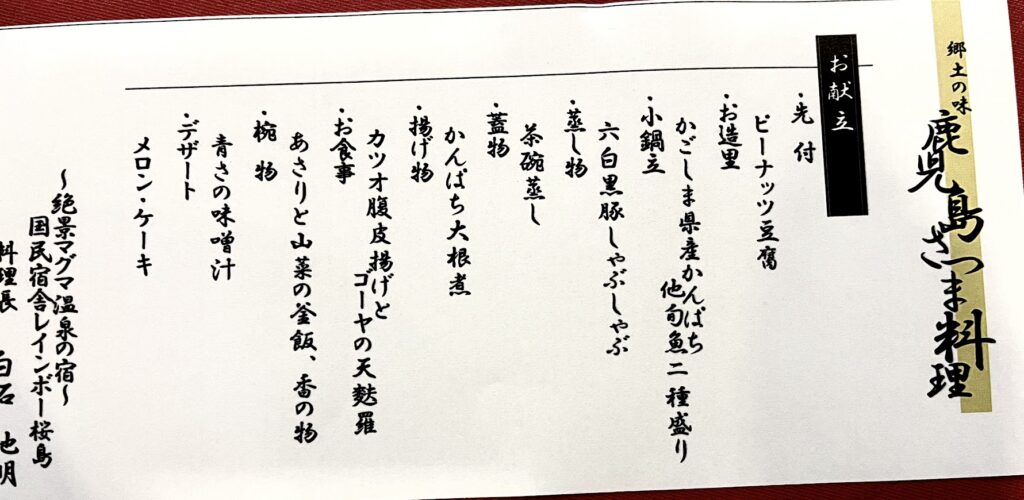 郷土の味
鹿児島さつま料理
お献立
・先付
ピーナッツ豆腐
・お造里
かごしま県産かんぱち
他旬魚二種盛り
・小鍋立
六白黒豚しゃぶしゃぶ
・蒸し物
茶碗蒸し
・蓋物
かんぱち大根煮
・揚げ物
カツオ腹皮揚げと
ゴーヤの天麩羅
・お食事
あさりと山菜の釜飯、香の物
・椀物
青さの味噌汁
・デザート
メロン・ケーキ
〜絶景マグマ温泉の宿〜
国民宿舎レインボー桜島
料理長 白石